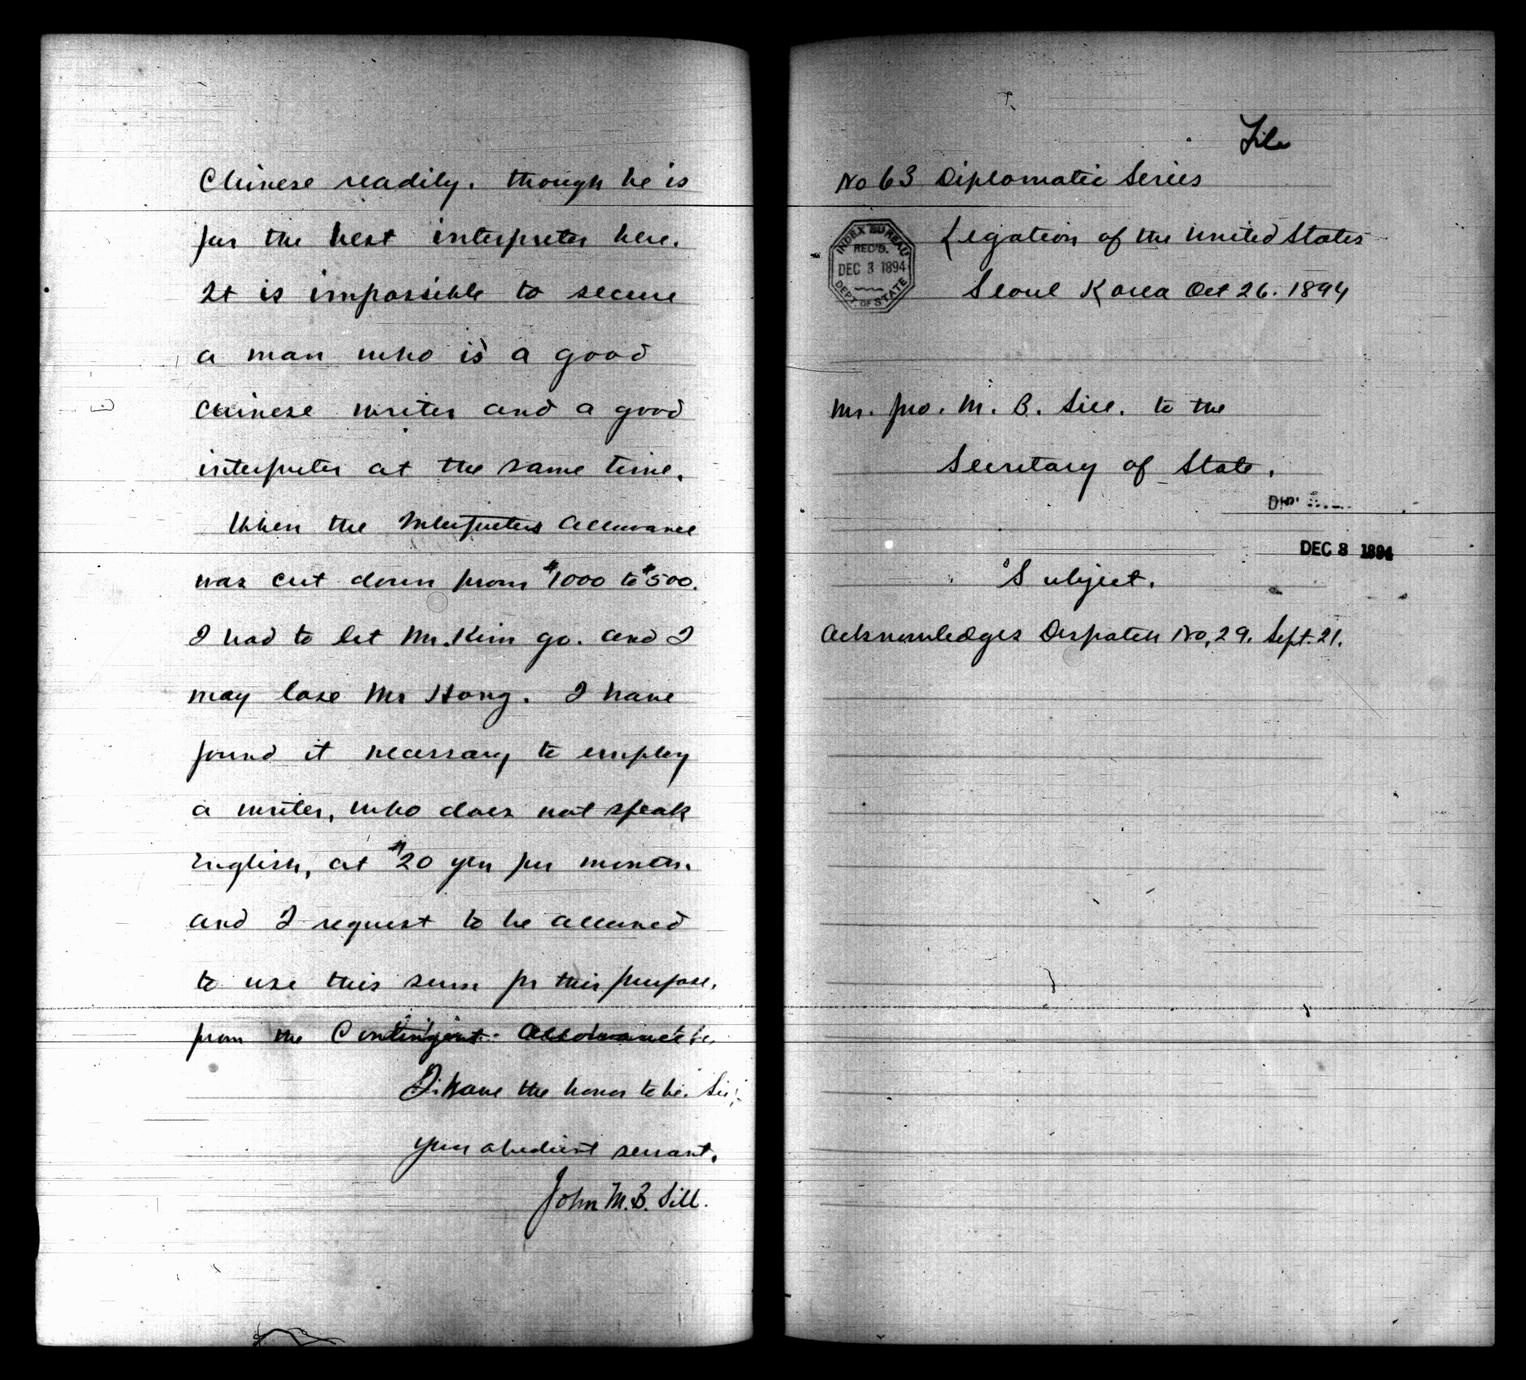 Chinese readily. though he is
far the best interpreter here.
It is impossible to secure
a man who is a good
Chinese writer and a good
interpreter at the same time.
When the Interpreters allowance
was cut down from $1000 to $500.
I had to let Mr. Kim go. and I
may lose Mr Hong. I have
found it necessary to employ
a writer, who does not speak
English, at $20 yen per month.
and I request to be allowed
to use this sum for this purpose,
from the Contingent Allowance
I have the honor to be. Sir,
your obedient servant,
John M. B. Sill.
File
No 63 Diplomatic Series
INDEX BUREAU
REC'D.
DEC 3 1894
DEPT. OF STATE
Legation of the United States
Seoul Korea Oct 26. 1894
Mr. Jno. M. B. Sill. to the
Secretary of State.
DEC 3 1894
Subject.
Acknowledges Dispatch No, 29. Sept. 21.